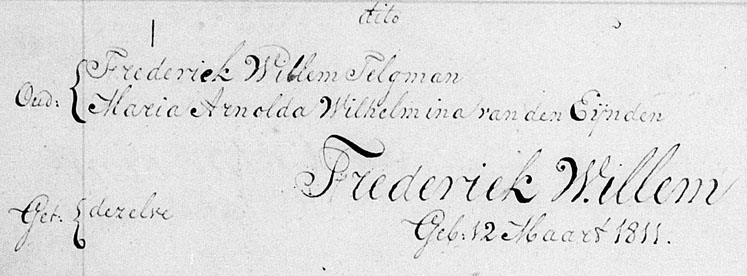 dito
Frederiek Willem Telgman
Oud: { Maria Arnolda Wilhelmina van den Eijnden
Frederiek Willem
Get: { dezelve
Geb: 12 Maart 1811.